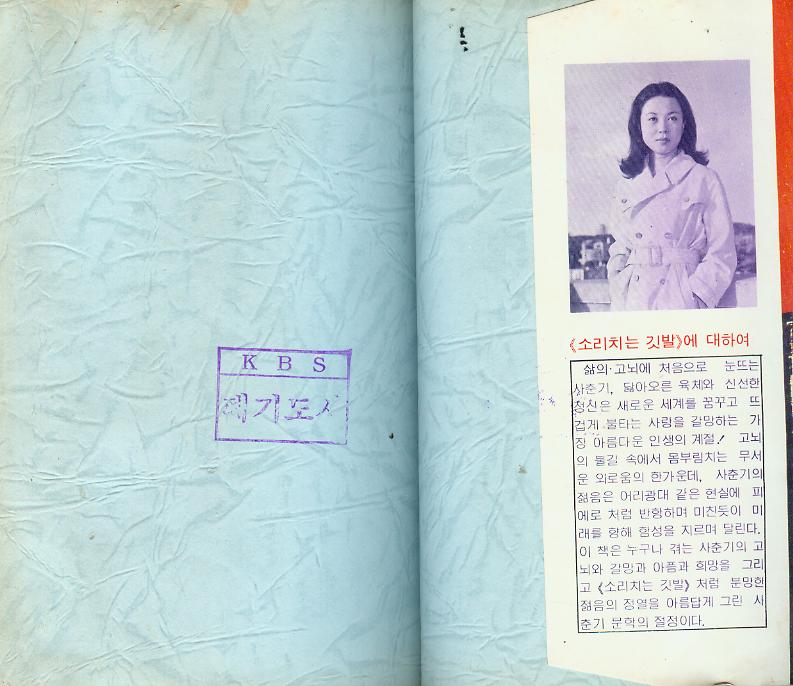 KBS
폐기도서
《소리치는 깃발》에 대하여
삶의·고뇌에 처음으로 눈뜨는
사춘기, 닳아오른 육체와 신선한
정신은 새로운 세계를 꿈꾸고 뜨
겁게 불타는 사랑을 갈망하는 가
장 아름다운 인생의 계절! 고뇌
의 불길 속에서 몸부림치는 무서
운 외로움의 한가운데, 사춘기의
젊음은 어리광대 같은 현실에 피
에로 처럼 반항하며 미친듯이 미
래를 향해 함성을 지르며 달린다.
이 책은 누구나 겪는 사춘기의 고
뇌와 갈망과 아픔과 희망을 그리
고 《소리치는 깃발》처럼 분망한
젊음의 정열을 아름답게 그린 사
춘기 문학의 절정이다.